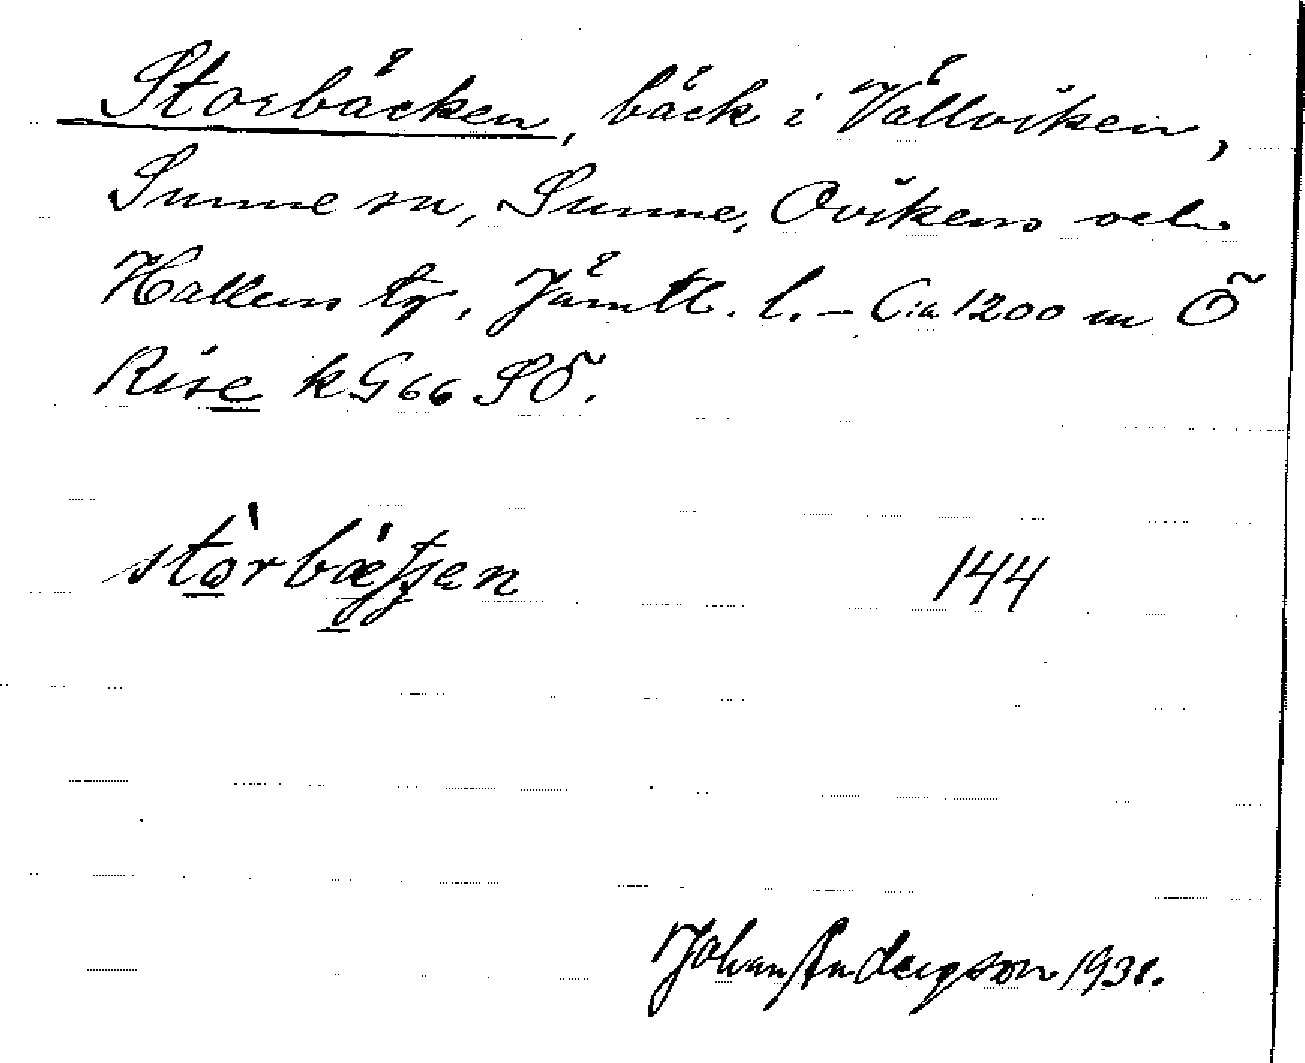 Storbäcken, bäck i Vällviken,
Sunne sn, Sunne, Ovikens och
Hallens tg, Jämtl. l. – C:a 1200 m Ö
Rise kG66 SÖ.
144
Johan Anderson 1938.